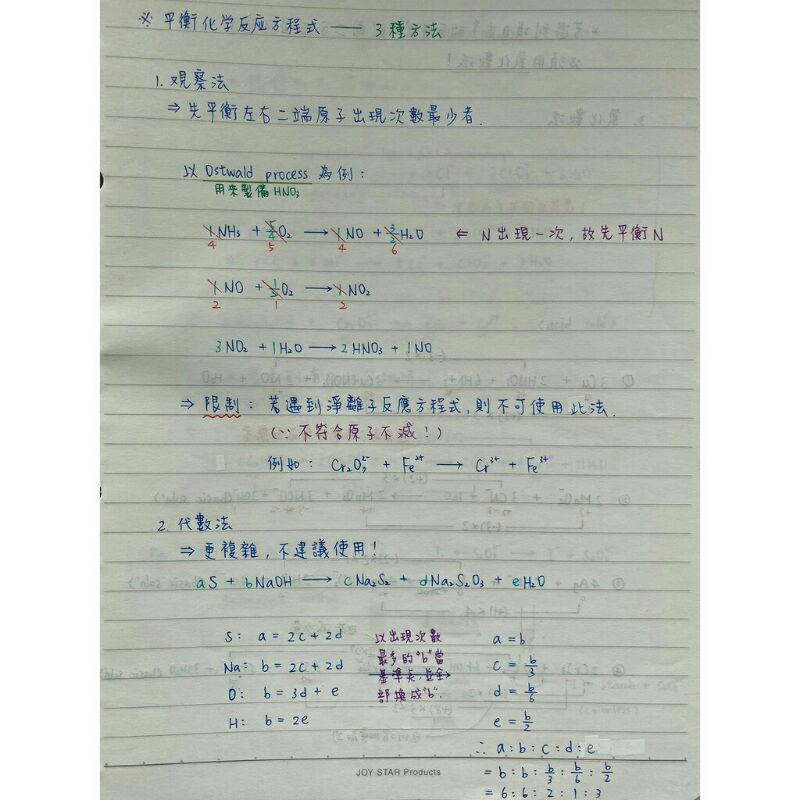 ※ 平衡化学反应方程式 —— 3種方法
1. 观察法
⇒ 先平衡左右二端原子出現次數最少者.
以 Ostwald process 為例:
用來製備 HNO₃
1NH₃ + 5/4 O₂ → 1NO + 3/2 H₂O ⇐ N出現一次, 故先平衡N
4 5 4 6
1NO + 1/2 O₂ → 1NO₂
2 1 2
3NO₂ + 1H₂O → 2HNO₃ + 1NO
⇒ 限制: 若遇到淨離子反應方程式, 則不可使用此法.
(∵ 不符合原子不滅!)
例如: Cr₂O₇²⁻ + Fe²⁺ → Cr³⁺ + Fe³⁺
2. 代數法
⇒ 更複雜, 不建議使用!
aS + bNaOH → cNa₂S₂ + dNa₂S₂O₃ + eH₂O
S: a = 2c + 2d
Na: b = 2c + 2d
O: b = 3d + e
H: b = 2e
以出現次數
最多的"b"當
基準点, 並全
部換成"b".
a = b
c = b/3
d = b/6
e = b/2
∴ a : b : c : d : e
= b : b : b/3 : b/6 : b/2
= 6 : 6 : 2 : 1 : 3
JOY STAR Products